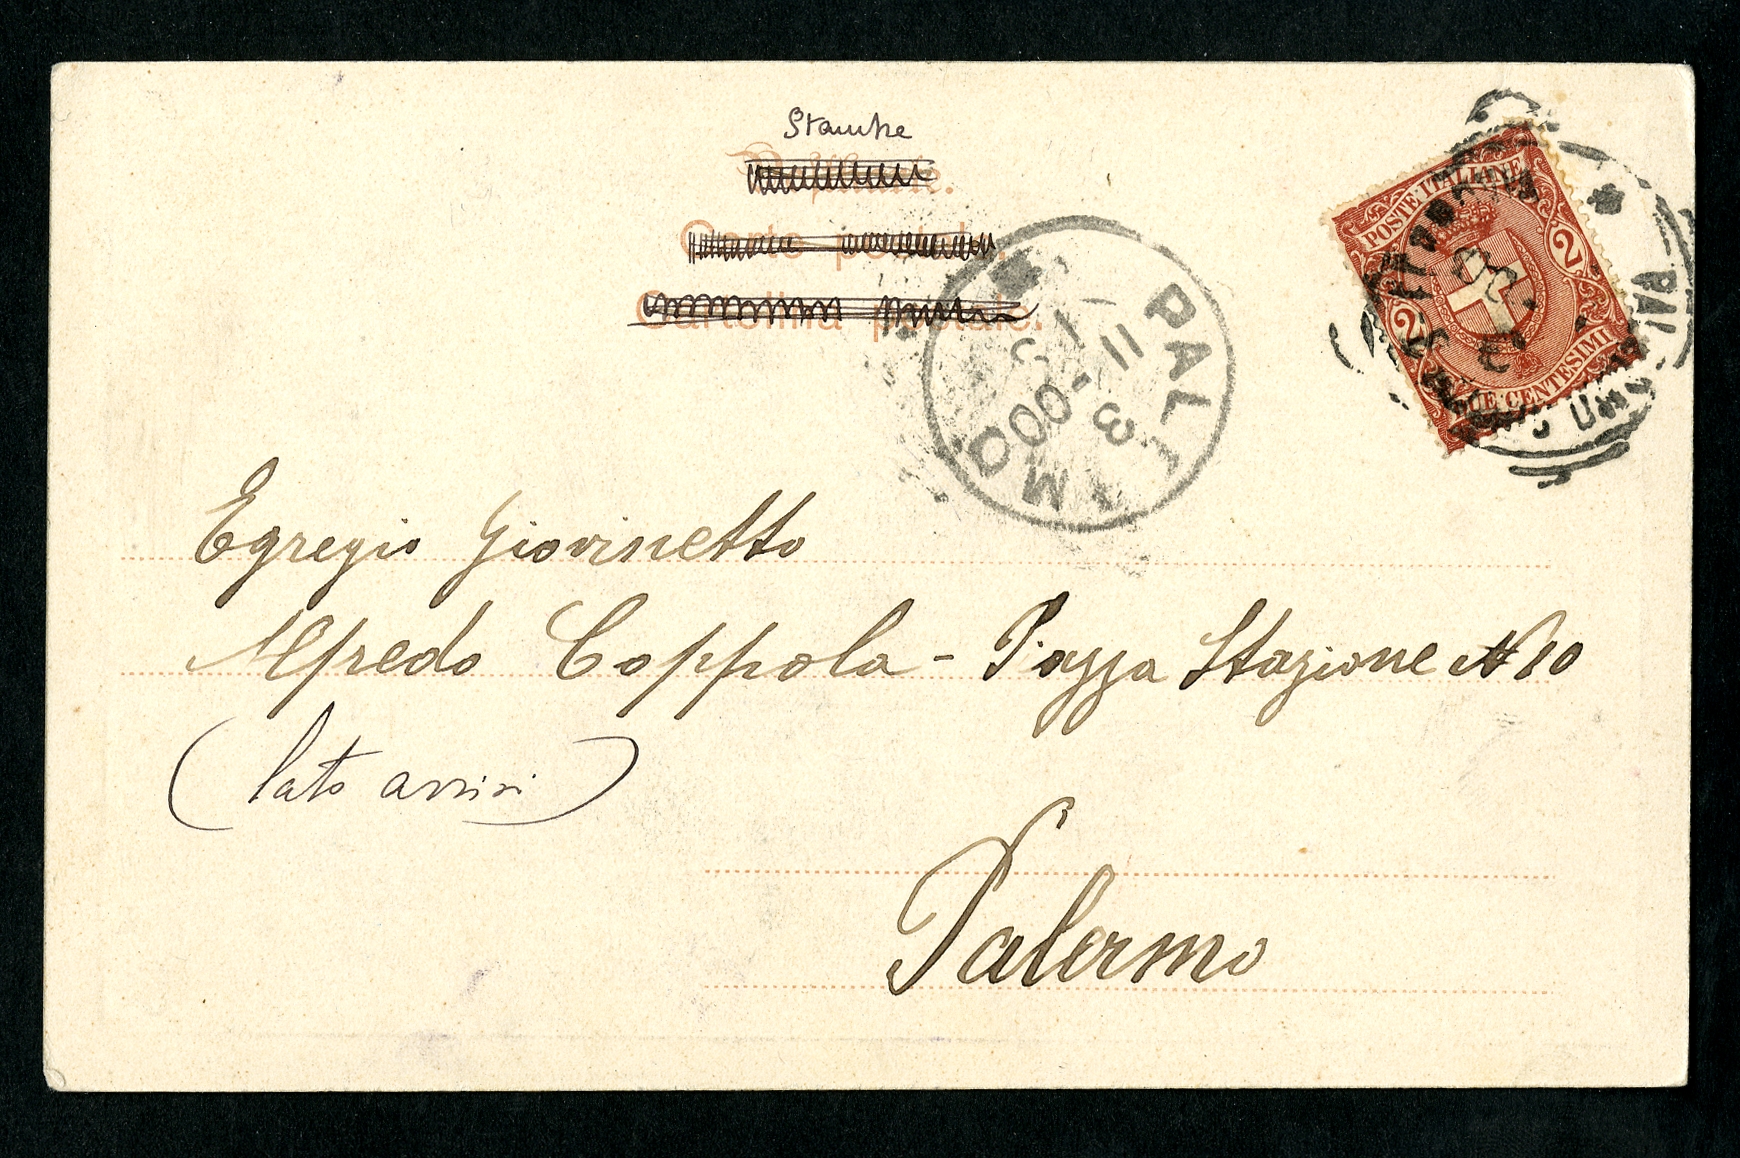 Stampe
Postkarte.
Carte postale.
Cartolina postale.
POSTE·ITALIANE
2 2
DUE·CENTESIMI
PALERMO
11-3
00
Egregio Giovinetto
Alfredo Coppola - Piazza Stazione N 10
(lato arrivi)
Palermo